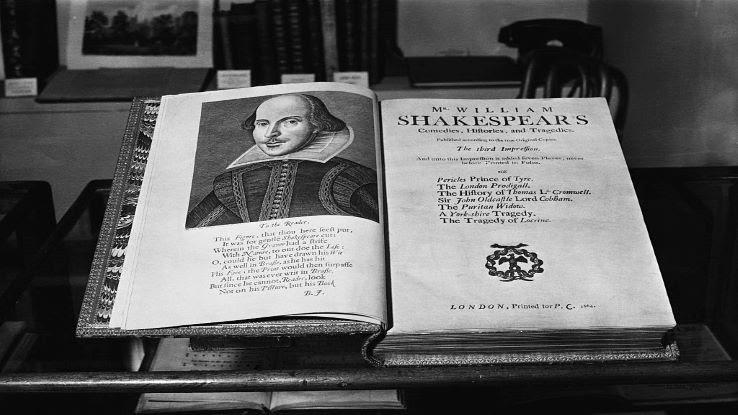 To the Reader.
This Figure, that thou here seest put,
It was for gentle Shakespeare cut;
Wherein the Graver had a strife
With Nature, to out-doe the Life:
O, could he but have drawn his Wit
As well in Brasse, as he has hit
His Face; the Print would then surpasse
All, that was ever writ in Brasse.
But since he cannot, Reader, look
Not on his Picture, but his Book
B. J.
Mr. WILLIAM
SHAKESPEAR'S
Comedies, Histories, and Tragedies.
Published according to the true Original Copies.
The third Impression.
And unto this Impression is added seven Playes, never
before Printed in Folio.
viz.
Pericles Prince of Tyre.
The London Prodigall.
The History of Thomas Ld. Cromwell.
Sir John Oldcastle Lord Cobham.
The Puritan Widow.
A York-shire Tragedy.
The Tragedy of Locrine.
LONDON, Printed for P. C. 1664.